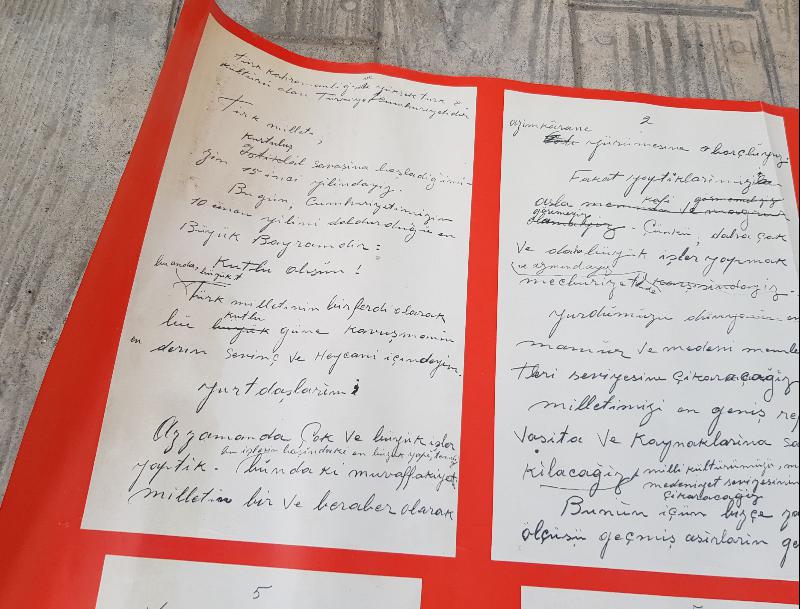 Türk kahramanlığı ve yüksek Türk
kültürü olan Türkiye Cumhuriyetidir
Türk milleti,
Kurtuluş
İstiklâl savaşına başladığımı
zın 15 inci yılındayız.
Bugün, Cumhuriyetimizin
10 uncu yılını doldurduğu en
Büyük Bayramdır:
Kutlu olsun!
bu anda, büyük
Türk milletinin bir ferdi olarak
kutlu
bu büyük güne kavuşmanın
en derin sevinç ve Heycanı içindeyim.
yurtdaşlarım:
Azzamanda Çok Ve büyük işler
bu işlerin başındaki en büyük yapı,
yaptık. bundaki muvaffakiyet,
milletin bir ve beraber olarak
2
azimkârane
yürümesine borçluyuz
Fakat yaptıklarımızı
kâfi görmeyiz
asla
Çünkü, daha çok
Ve daha büyük işler yapmak
ve azmindeyiz
mecburiyeti karşısındayız.
yurdumuzu dünyanın en
mamûr ve medeni memle
ketleri seviyesine çıkaracağız
milletimizi en geniş ref
Vasıta ve Kaynaklarına sa
kılacağız milli kültürümüzü, m
medeniyet seviyesinin
çıkaracağız
Bunun için bizce za
ölçüsü geçmiş asırların ge
5